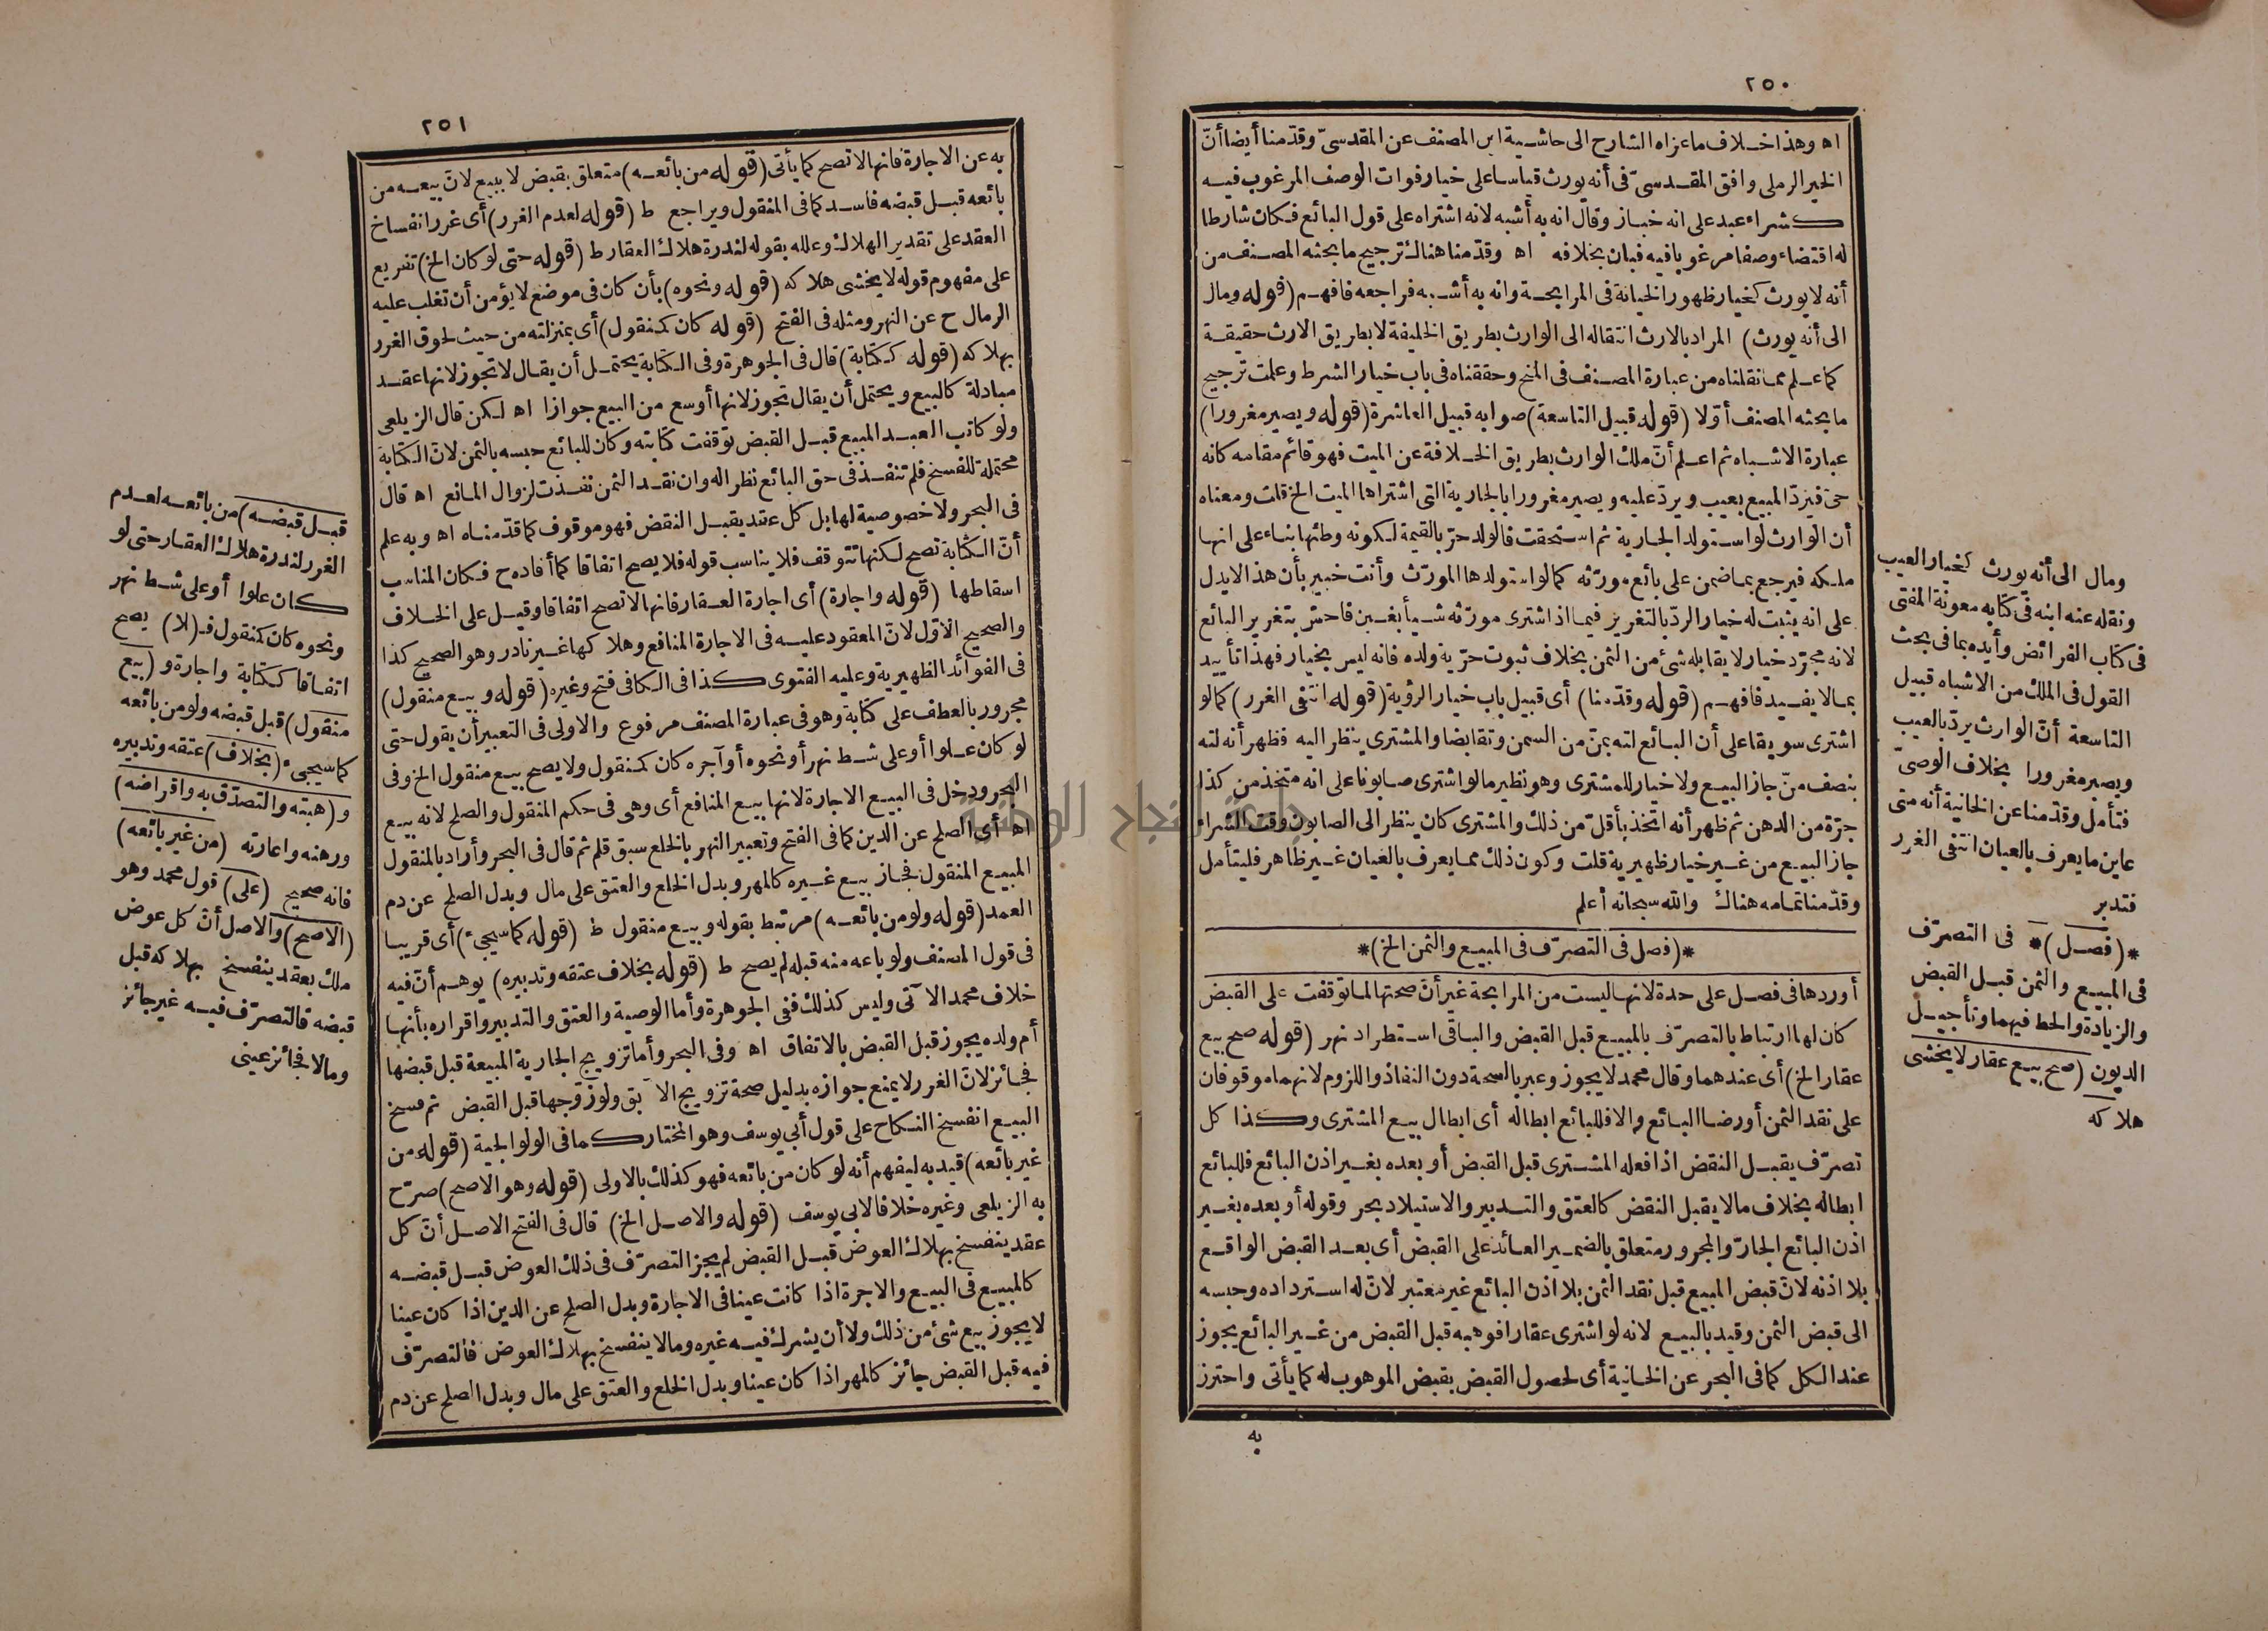 ٢٥٠
اه وهذا خلاف ما عزاه الشارح الى حاشية ابن المصنف عن المقدسىّ وقدّمنا أيضا أنّ
الخير الرملى وافق المقدسىّ فى أنه يورث قياسا على خيار فوات الوصف المرغوب فيه
كشراء عبد على انه خباز وقال انه به أشبه لانه اشتراه على قول البائع فكان شارطا
له اقتضاء وصفا مرغوبا فيه فبان بخلافه اه وقدّمنا هناك ترجيح ما بحثه المصنف من
أنه لا يورث كخيار ظهور الخيانة فى المرابحة وانه به أشبه فراجعه فافهم (قوله ومال
الى أنه يورث) المراد بالارث انتقاله الى الوارث بطريق الخليفة لا بطريق الارث حقيقة
كما علم مما نقلناه من عبارة المصنف فى المنح وحققناه فى باب خيار الشرط وعلمت ترجيح
ما بحثه المصنف أوّلا (قوله قبيل التاسعة) صوابه قبيل العاشرة (قوله ويصير مغرورا)
عبارة الاشباه ثم اعلم أنّ ملك الوارث بطريق الخلافة عن الميت فهو قائم مقامه كانه
حىّ فيردّ المبيع بعيب ويردّ عليه ويصير مغرورا بالجارية التى اشتراها الميت الخ قلت ومعناه
أن الوارث لو استولد الجارية ثم استحقت فالولد حرّ بالقيمة لكونه وطئها بناء على انها
ملكه فيرجع بما ضمن على بائع مورّثه كما لو استولدها المورّث وأنت خبير بأن هذا لا يدل
على انه يثبت له خيار الردّ بالتغرير فيما اذا اشترى مورّثه شيأ بغبن فاحش بتغرير البائع
لانه مجرّد خيار لا يقابله شئ من الثمن بخلاف ثبوت حرّية ولده فانه ليس بخيار فهذا تأييد
بما لا يفيد فافهم (قوله وقدّمنا) أى قبيل باب خيار الرؤية (قوله انتفى الغرر) كما لو
اشترى سويقا على أن البائع لته بمنّ من السمن وتقابضا والمشترى ينظر اليه فظهر أنه لته
بنصف منّ جاز البيع ولا خيار للمشترى وهو نظير ما لو اشترى صابونا على انه متخذ من كذا
جرّة من الدهن ثم ظهر أنه اتخذ بأقلّ من ذلك والمشترى كان ينظر الى الصابون وقت الشراء
جاز البيع من غير خيار ظهيرية قلت وكون ذلك مما يعرف بالعيان غير ظاهر فليتأمل
وقدّمنا تمامه هناك والله سبحانه أعلم
*(فصل فى التصرّف فى المبيع والثمن الخ)*
أوردها فى فصل على حدة لانها ليست من المرابحة غير أنّ صحتها لما توقفت على القبض
كان لها ارتباط بالتصرّف بالمبيع قبل القبض والباقى استطراد نهر (قوله صح بيع
عقار الخ) أى عندهما وقال محمد لا يجوز وعبر بالصحة دون النفاذ واللزوم لانهما موقوفان
على نقد الثمن أو رضا البائع والا فللبائع ابطاله أى ابطال بيع المشترى وكذا كل
تصرّف يقبل النقض اذا فعله المشترى قبل القبض أو بعده بغير اذن البائع فللبائع
ابطاله بخلاف ما لا يقبل النقض كالعتق والتدبير والاستيلاد بحر وقوله أو بعده بغير
اذن البائع الجارّ والمجرور متعلق بالضمير العائد على القبض أى بعد القبض الواقع
بلا اذنه لانّ قبض المبيع قبل نقد الثمن بلا اذن البائع غير معتبر لانّ له استرداده وحبسه
الى قبض الثمن وقيد بالبيع لانه لو اشترى عقارا فوهبه قبل القبض من غير البائع يجوز
عند الكل كما فى البحر عن الخانية أى لحصول القبض بقبض الموهوب له كما يأتى واحترز
به
ومال الى أنه يورث كخيار العيب
ونقله عنه ابنه فى كتابه معونة المفتى
فى كتاب الفرائض وأيده بما فى بحث
القول فى الملك من الاشباه قبيل
التاسعة أنّ الوارث يردّ بالعيب
ويصير مغرورا بخلاف الوصىّ
فتأمل وقدّمنا عن الخانية أنه متى
عاين ما يعرف بالعيان انتفى الغرر
فتدبر
*(فصل)* فى التصرّف
فى المبيع والثمن قبل القبض
والزيادة والحط فيهما وتأجيل
الديون (صح بيع عقار لا يخشى
هلاكه
٢٥١
به عن الاجارة فانها لا تصح كما يأتى (قوله من بائعه) متعلق بقبض لا ببيع لانّ بيعه من
بائعه قبل قبضه فاسد كما فى المنقول ويراجع ط (قوله لعدم الغرر) أى غرر انفساخ
العقد على تقدير الهلاك وعلله بقوله لندرة هلاك العقار ط (قوله حتى لو كان الخ) تفريع
على مفهوم قوله لا يخشى هلاكه (قوله ونحوه) بأن كان فى موضع لا يؤمن أن تغلب عليه
الرمال ح عن النهر ومثله فى الفتح (قوله كان كمنقول) أى بمنزلته من حيث لحوق الغرر
بهلاكه (قوله ككتابة) قال فى الجوهرة وفى الكتابة يحتمل أن يقال لا تجوز لانها عقد
مبادلة كالبيع ويحتمل أن يقال تجوز لانها أوسع من البيع جوازا اه لكن قال الزيلعى
ولو كاتب العبد المبيع قبل القبض توقفت كتابته وكان للبائع حبسه بالثمن لانّ الكتابة
محتملة للفسخ فلم تنفذ فى حق البائع نظرا له وان نقد الثمن نفذت لزوال المانع اه قال
فى البحر ولا خصوصية لها بل كل عقد يقبل النقض فهو موقوف كما قدّمناه اه وبه علم
أنّ الكتابة تصح لكنها تتوقف فلا يناسب قوله فلا يصح اتفاقا كما أفاده ح فكان المناسب
اسقاطها (قوله واجارة) أى اجارة العقار فانها لا تصح اتفاقا وقيل على الخلاف
والصحيح الاوّل لانّ المعقود عليه فى الاجارة المنافع وهلاكها غير نادر وهو الصحيح كذا
فى الفوائد الظهيرية وعليه الفتوى كذا فى الكافى فتح وغيره (قوله وبيع منقول)
مجرور بالعطف على كتابة وهو فى عبارة المصنف مرفوع والاولى فى التعبير أن يقول حتى
لو كان علوا أو على شط نهر أو نحوه أو آجره كان كمنقول ولا يصح بيع منقول الخ وفى
البحر ودخل فى البيع الاجارة لانها بيع المنافع أى وهى فى حكم المنقول والصلح لانه بيع
اه أى الصلح عن الدين كما فى الفتح وتعبير النهر بالخلع سبق قلم ثم قال فى البحر وأراد بالمنقول
المبيع المنقول فجاز بيع غيره كالمهر وبدل الخلع والعتق على مال وبدل الصلح عن دم
العمد (قوله ولو من بائعه) مرتبط بقوله وبيع منقول ط (قوله كما سيجىء) أى قريبا
فى قول المصنف ولو باعه منه قبله لم يصح ط (قوله بخلاف عتقه وتدبيره) يوهم أنّ فيه
خلاف محمد الآتى وليس كذلك ففى الجوهرة وأما الوصية والعتق والتدبير واقراره بأنها
أم ولده يجوز قبل القبض بالاتفاق اه وفى البحر وأما تزويج الجارية المبيعة قبل قبضها
فجائز لانّ الغرر لا يمنع جوازه بدليل صحة تزويج الآبق ولو زوّجها قبل القبض ثم فسخ
البيع انفسخ النكاح على قول أبى يوسف وهو المختار كما فى الولوالجية (قوله من
غير بائعه) قيد به ليفهم أنه لو كان من بائعه فهو كذلك بالاولى (قوله وهو الاصح) صرّح
به الزيلعى وغيره خلافا لابى يوسف (قوله والاصل الخ) قال فى الفتح الاصل أنّ كل
عقد ينفسخ بهلاك العوض قبل القبض لم يجز التصرّف فى ذلك العوض قبل قبضه
كالمبيع فى البيع والاجرة اذا كانت عينا فى الاجارة وبدل الصلح عن الدين اذا كان عينا
لا يجوز بيع شئ من ذلك ولا أن يشرك فيه غيره وما لا ينفسخ بهلاك العوض فالتصرّف
فيه قبل القبض جائز كالمهر اذا كان عينا وبدل الخلع والعتق على مال وبدل الصلح عن دم
قبل قبضه) من بائعه لعدم
الغرر لندرة هلاك العقار حتى لو
كان علوا أو على شط نهر
ونحوه كان كمنقول فـ(لا) يصح
اتفاقا ككتابة واجارة و(بيع
منقول) قبل قبضه ولو من بائعه
كما سيجىء (بخلاف) عتقه وتدبيره
و(هبته والتصدّق به واقراضه)
ورهنه واعارته (من غير بائعه)
فانه صحيح (على) قول محمد وهو
(الاصح) والاصل أنّ كل عوض
ملك بعقد ينفسخ بهلاكه قبل
قبضه فالتصرّف فيه غير جائز
وما لا فجائز عينى
جامعة النجاح الوطنية